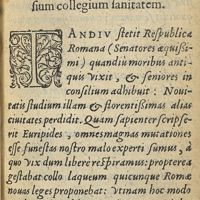 sium collegium sanitatem.
TANDIV stetit Respublica
Romana (Senatores æquissi-
mi) quandiu moribus anti-
quis vixit, & seniores in
consilium adhibuit: Noui-
tatis studium illam & florentissimas alias
ciuitates perdidit. Quam sapienter scripse-
rit Euripides, omnes magnas mutationes
esse funestas nostro malo experti sumus, à
quo vix dum liberè respiramus: propterea
gestabat collo laqueum quicunque Romæ
nouas leges proponebat: Vtinam hoc modo